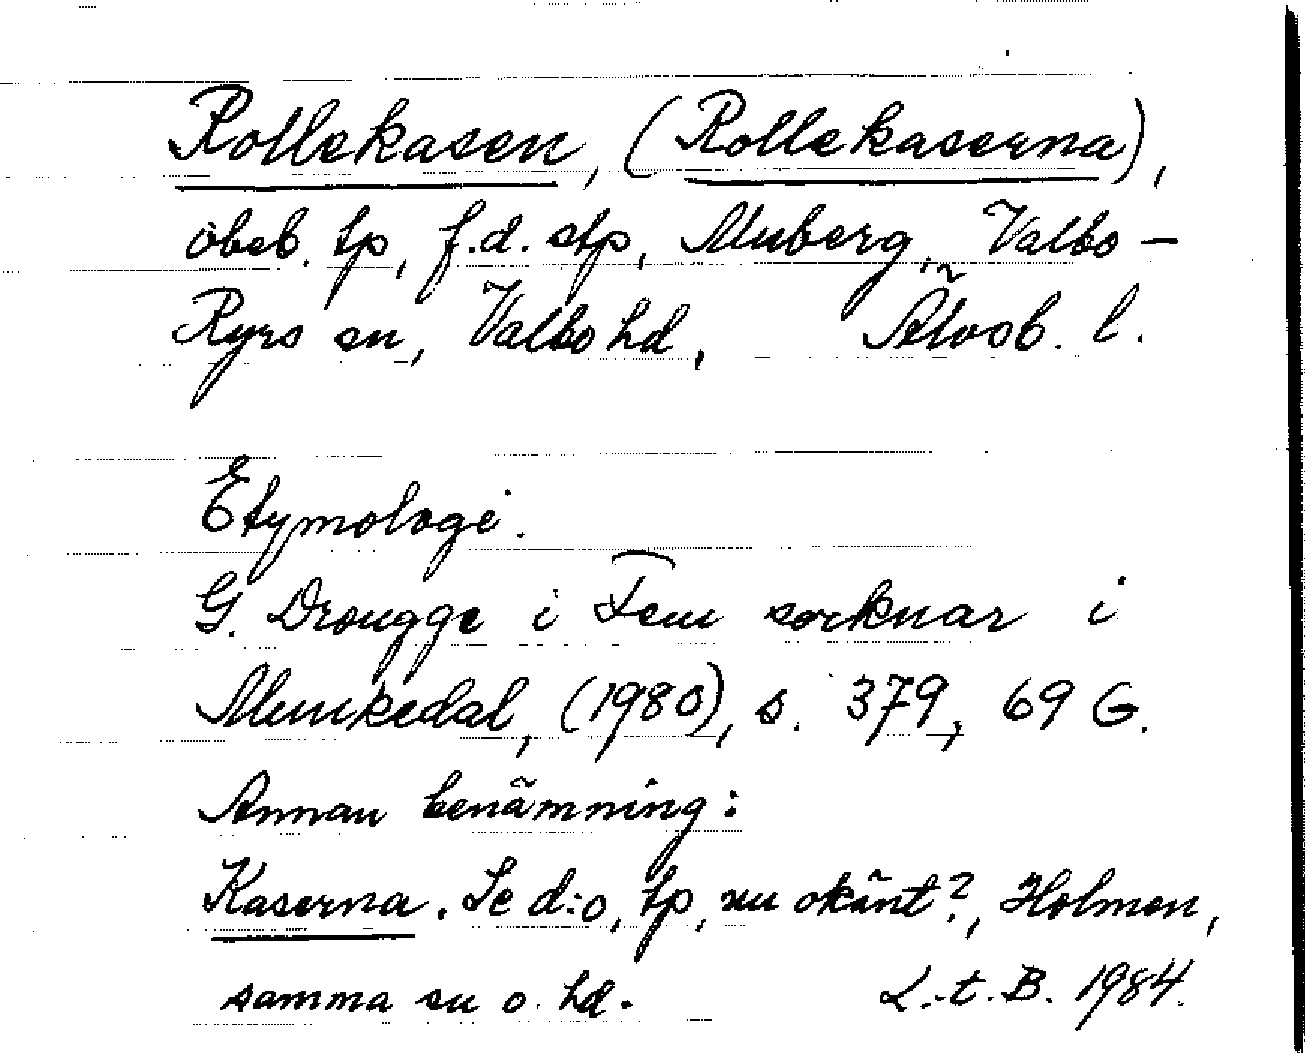 Rollekasen, (Rollekaserna),
obeb. tp, f.d. stp, Muberg, Valbo-
Ryrs sn, Valbo hd, Älvsb. l.
Etymologi.
G. Drougge i Fem socknar i
Munkedal, (1980), s. 379, 69 G.
Annan benämning:
Kaserna. Se d:o, tp, nu okänt?, Holmen,
samma sn o. hd. L.t.B. 1984.